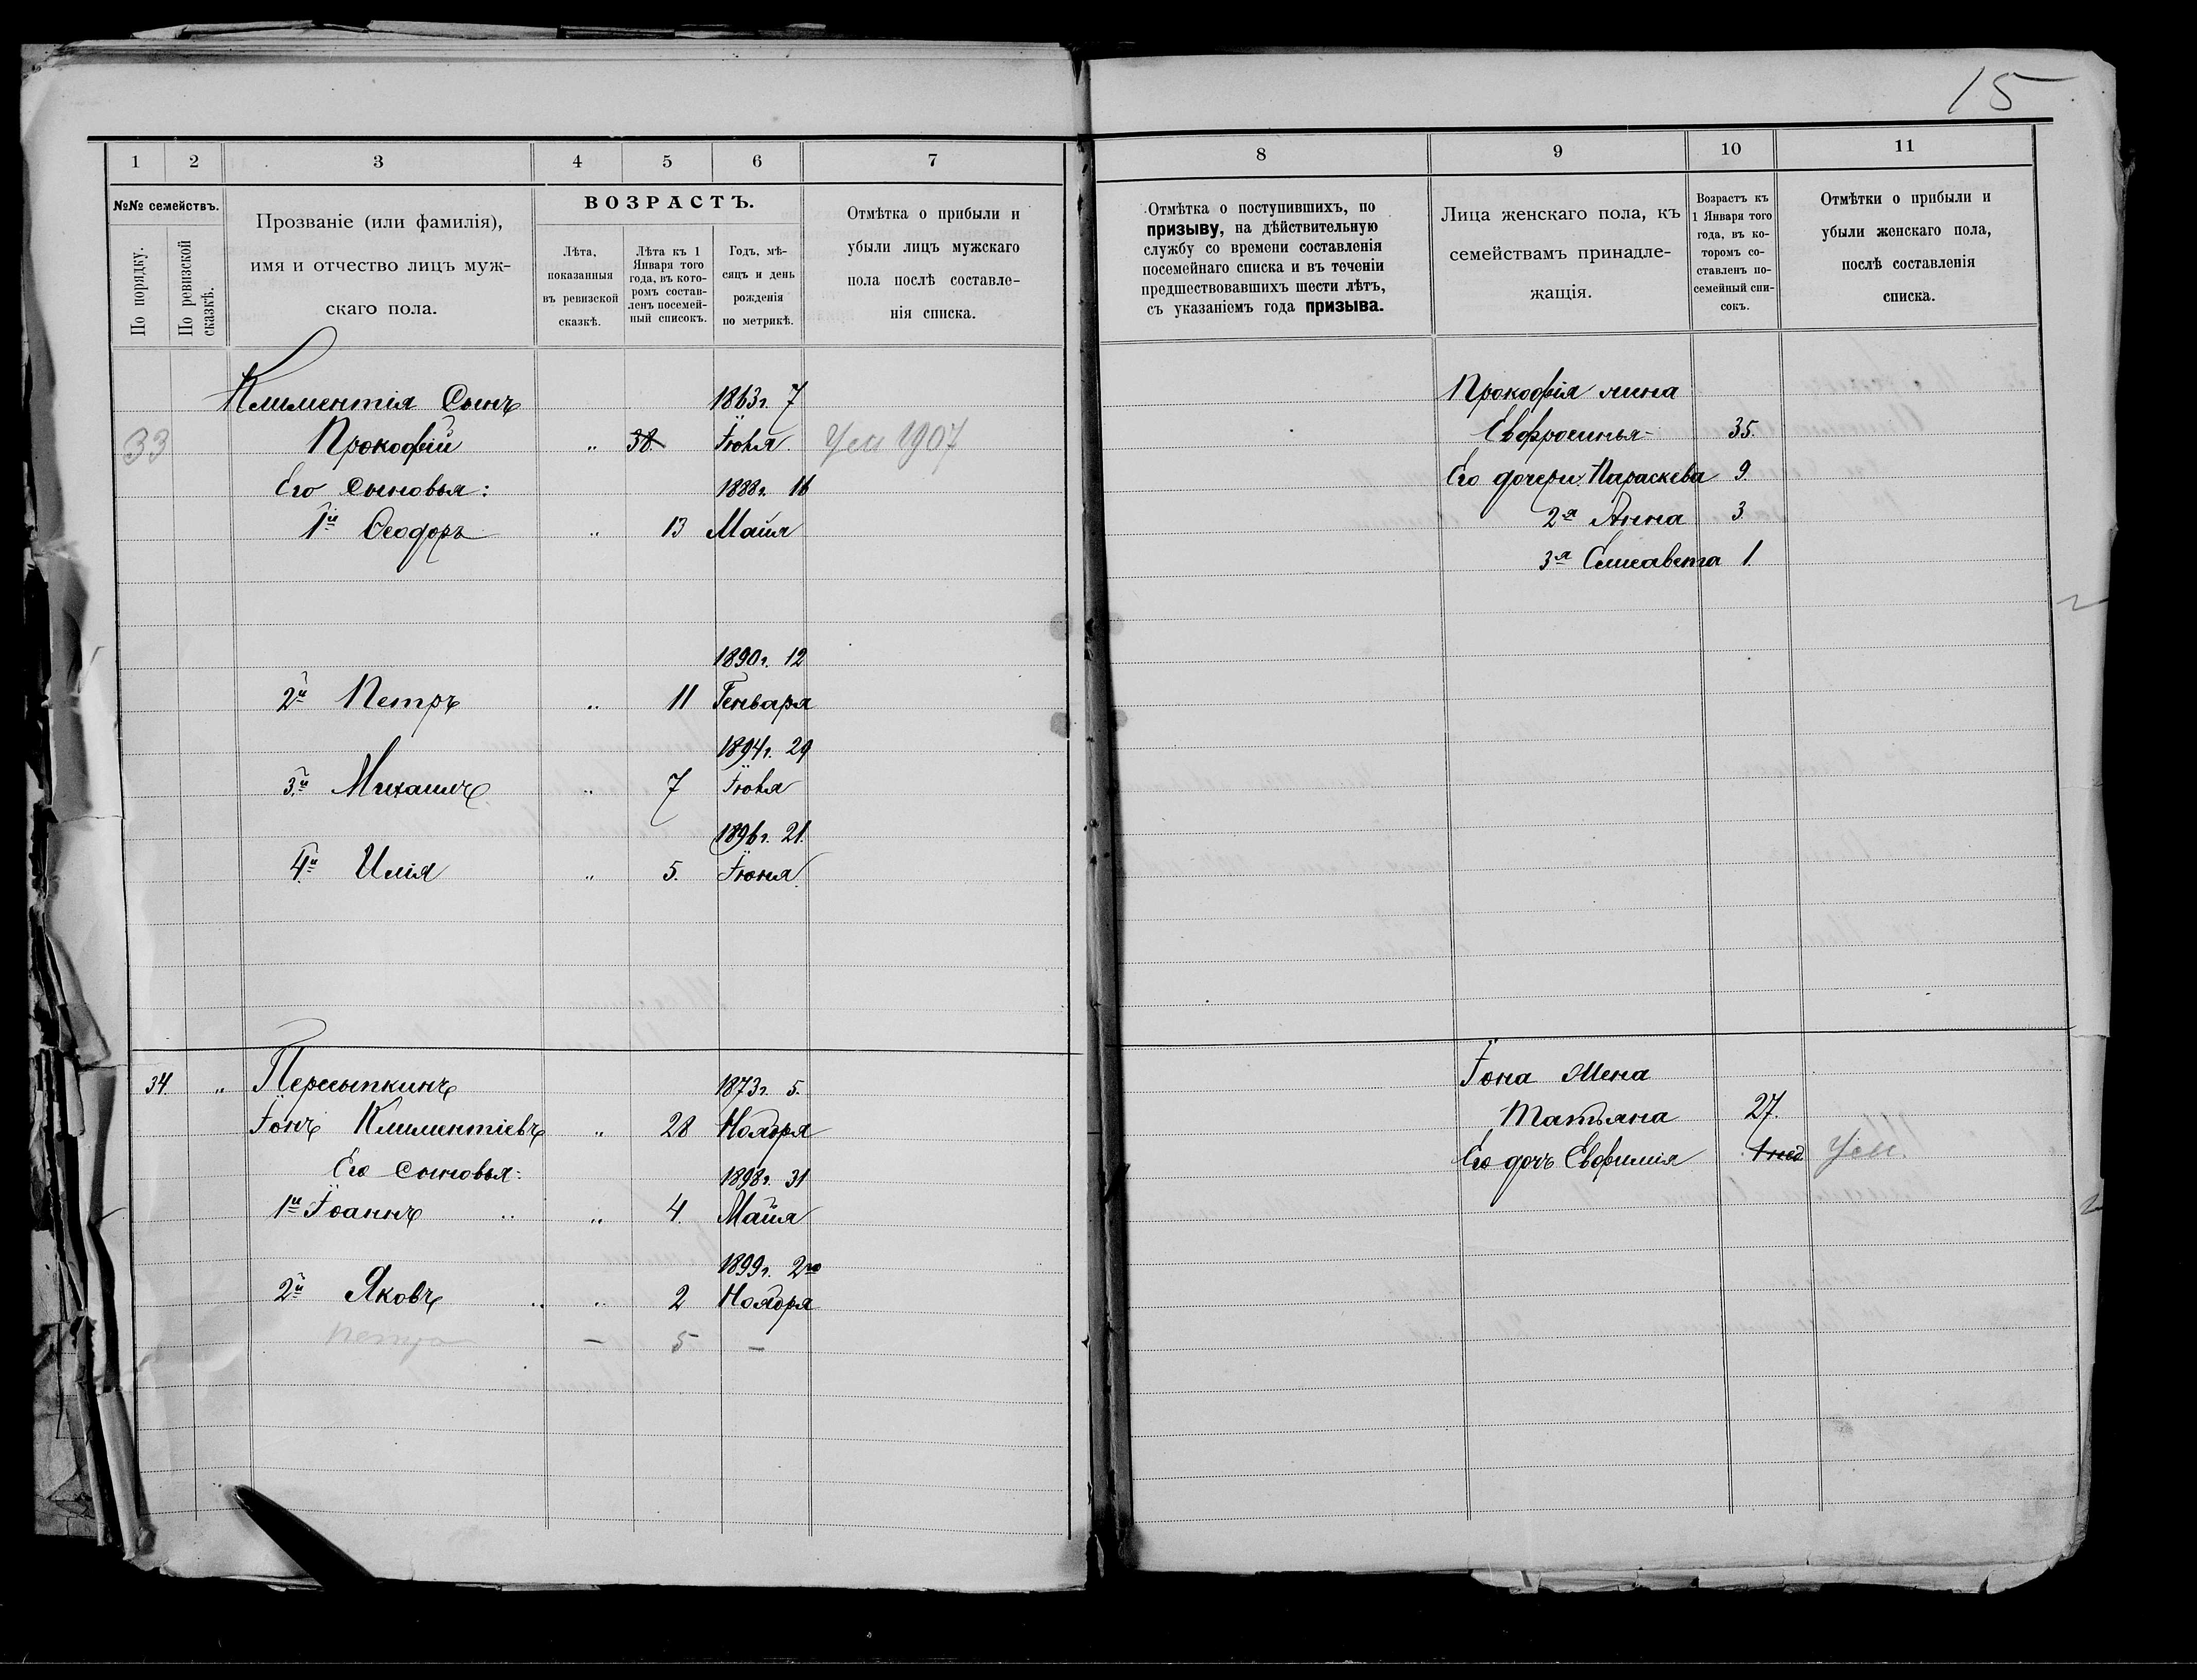 15
1 2 3 4 5 6 7
№№ семействъ.
По порядку.
По ревизской сказкѣ.
Прозваніе (или фамилія),
имя и отчество лицъ муж-
скаго пола.
ВОЗРАСТЪ.
Лѣта,
показанныя
въ ревизской
сказкѣ.
Лѣта къ 1
Января того
года, въ кото-
ромъ состав-
ленъ посемей-
ный списокъ.
Годъ, мѣ-
сяцъ и день
рожденія
по метрикѣ.
Отмѣтка о прибыли и
убыли лицъ мужскаго
пола послѣ составле-
нія списка.
Климентія Сынъ 1863г. 7
33 Прокофій „ 38. Іюля Ум 1907
Его Сыновья: 1888г. 16
1й Ѳеодоръ „ 13 Майя
1890г. 12
2й Петръ „ 11 Генваря
1894г. 29
3й Михаилъ „ 7 Іюля
1896г. 21.
4й Илія „ 5. Іюня
34. „ Пересыпкинъ 1873г. 5.
Іонъ Климентіевъ „ 28 Ноября
Его Сыновья: 1898г. 31
1й Іоаннъ „ „ 4. Майя
1899г. 2го
2й Яковъ „ „ 2 Ноября
Петръ – 5 –
8 9 10 11
Отмѣтка о поступившихъ, по
призыву, на дѣйствительную
службу со времени составленія
посемейнаго списка и въ теченіи
предшествовавшихъ шести лѣтъ,
съ указаніемъ года призыва.
Лица женскаго пола, къ
семействамъ принадле-
жащія.
Возрастъ къ
1 Января того
года, въ ко-
торомъ со-
ставленъ по-
семейный спи-
сокъ.
Отмѣтки о прибыли и
убыли женскаго пола,
послѣ составленія
списка.
Прокофія жина
Евфросинья 35.
Его дочери: Параскева 9.
2я Анна 3
3я Елисавета 1.
Іона Жена
Татьяна 27.
Его дочь Евфимія 1 нед Ум.